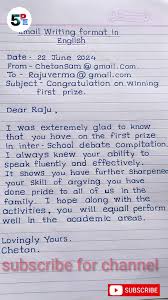 5
Email Writing format in
English
Date - 22 June 2024
From - Chetansam@gmail.com
To - Rajuverma@gmail.com
Subject - Congratulation on winning
first prize.
Dear Raju,
I was exteremely glad to know
that you have on the first prize
in inter-School debate compitation.
I always knew your ability to
speak fluently and effectively.
It shows you have further sharpened
your skill of argving you have
done pride to all of us in the
family. I hope along with the
activities, you will equall perform
well in the academic areas.
Lovingly Yours.
Chetan.
subscribe for channel
SUBSCRIBE